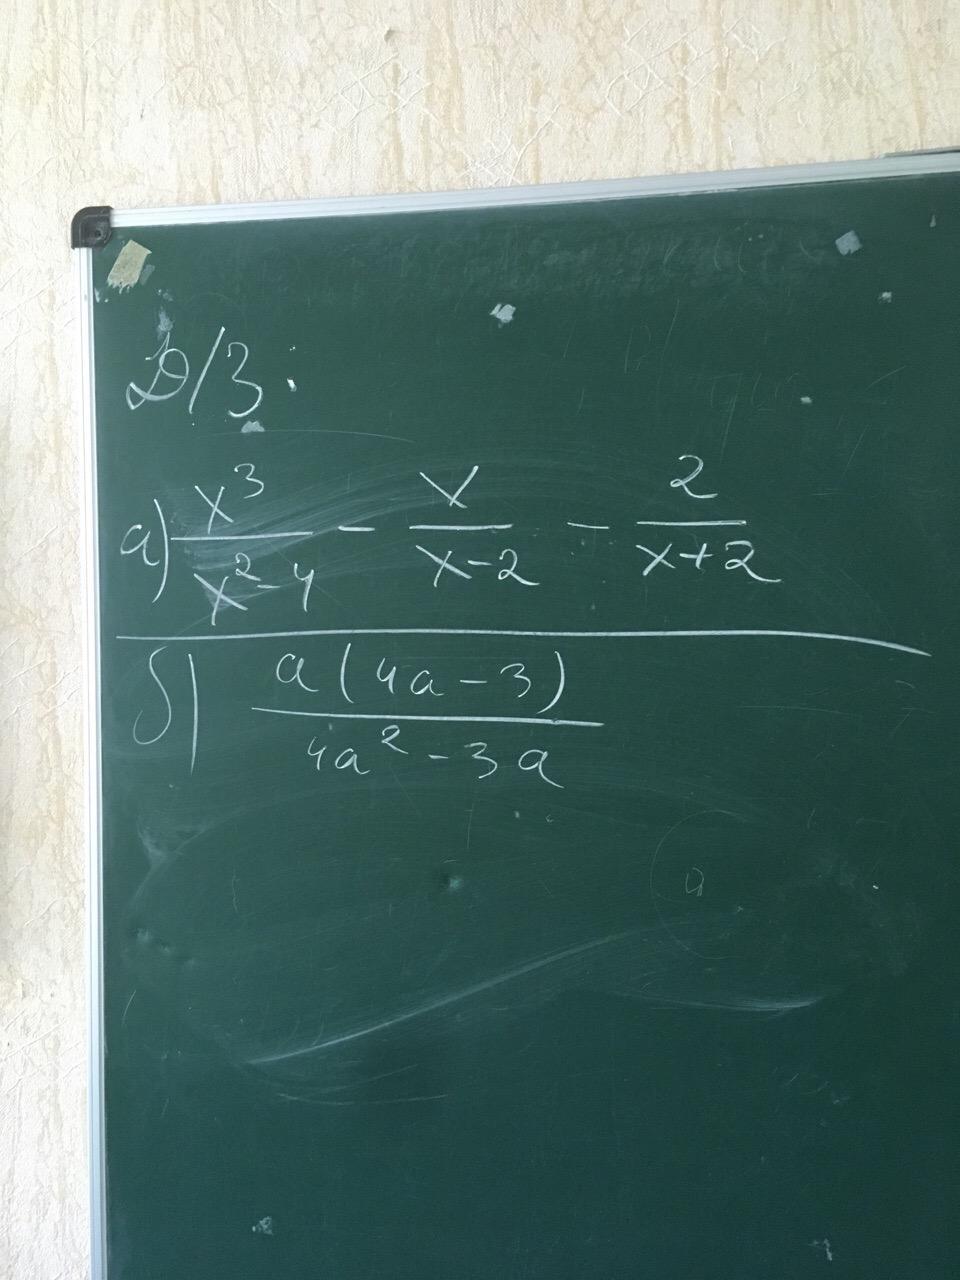 Д/З:
а) x³/(x²-4) - x/(x-2) - 2/(x+2)
б) a(4a-3)/(4a²-3a)